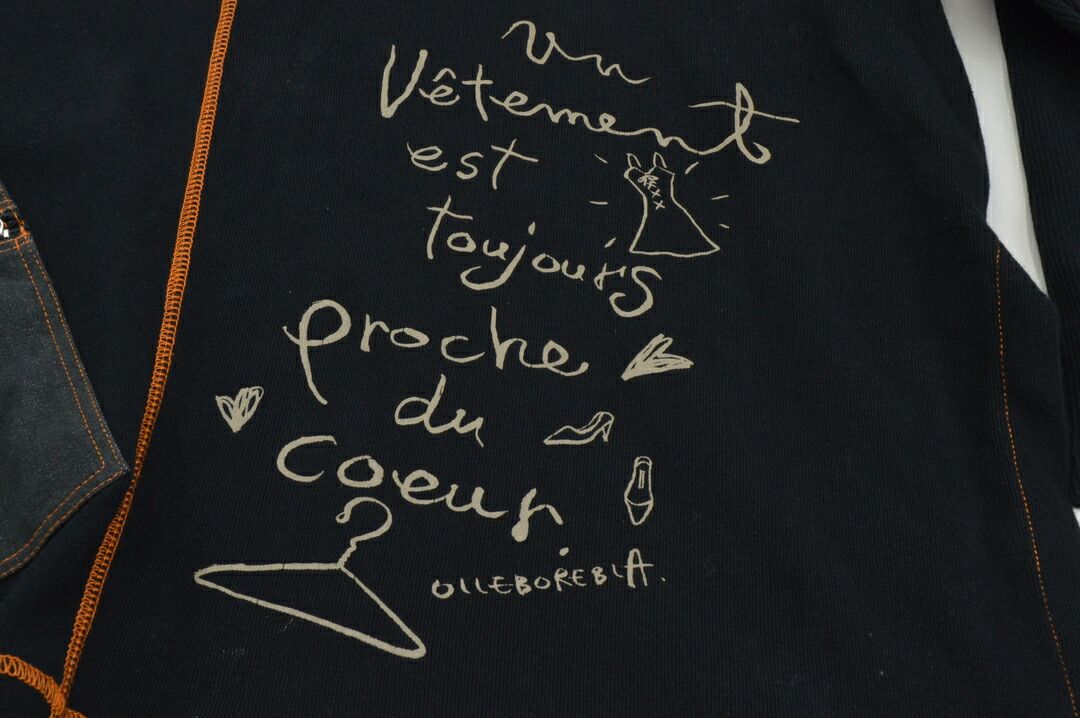 un
Vêtement
est
toujours
proche
du
coeur.
OLLEBOREBLA.